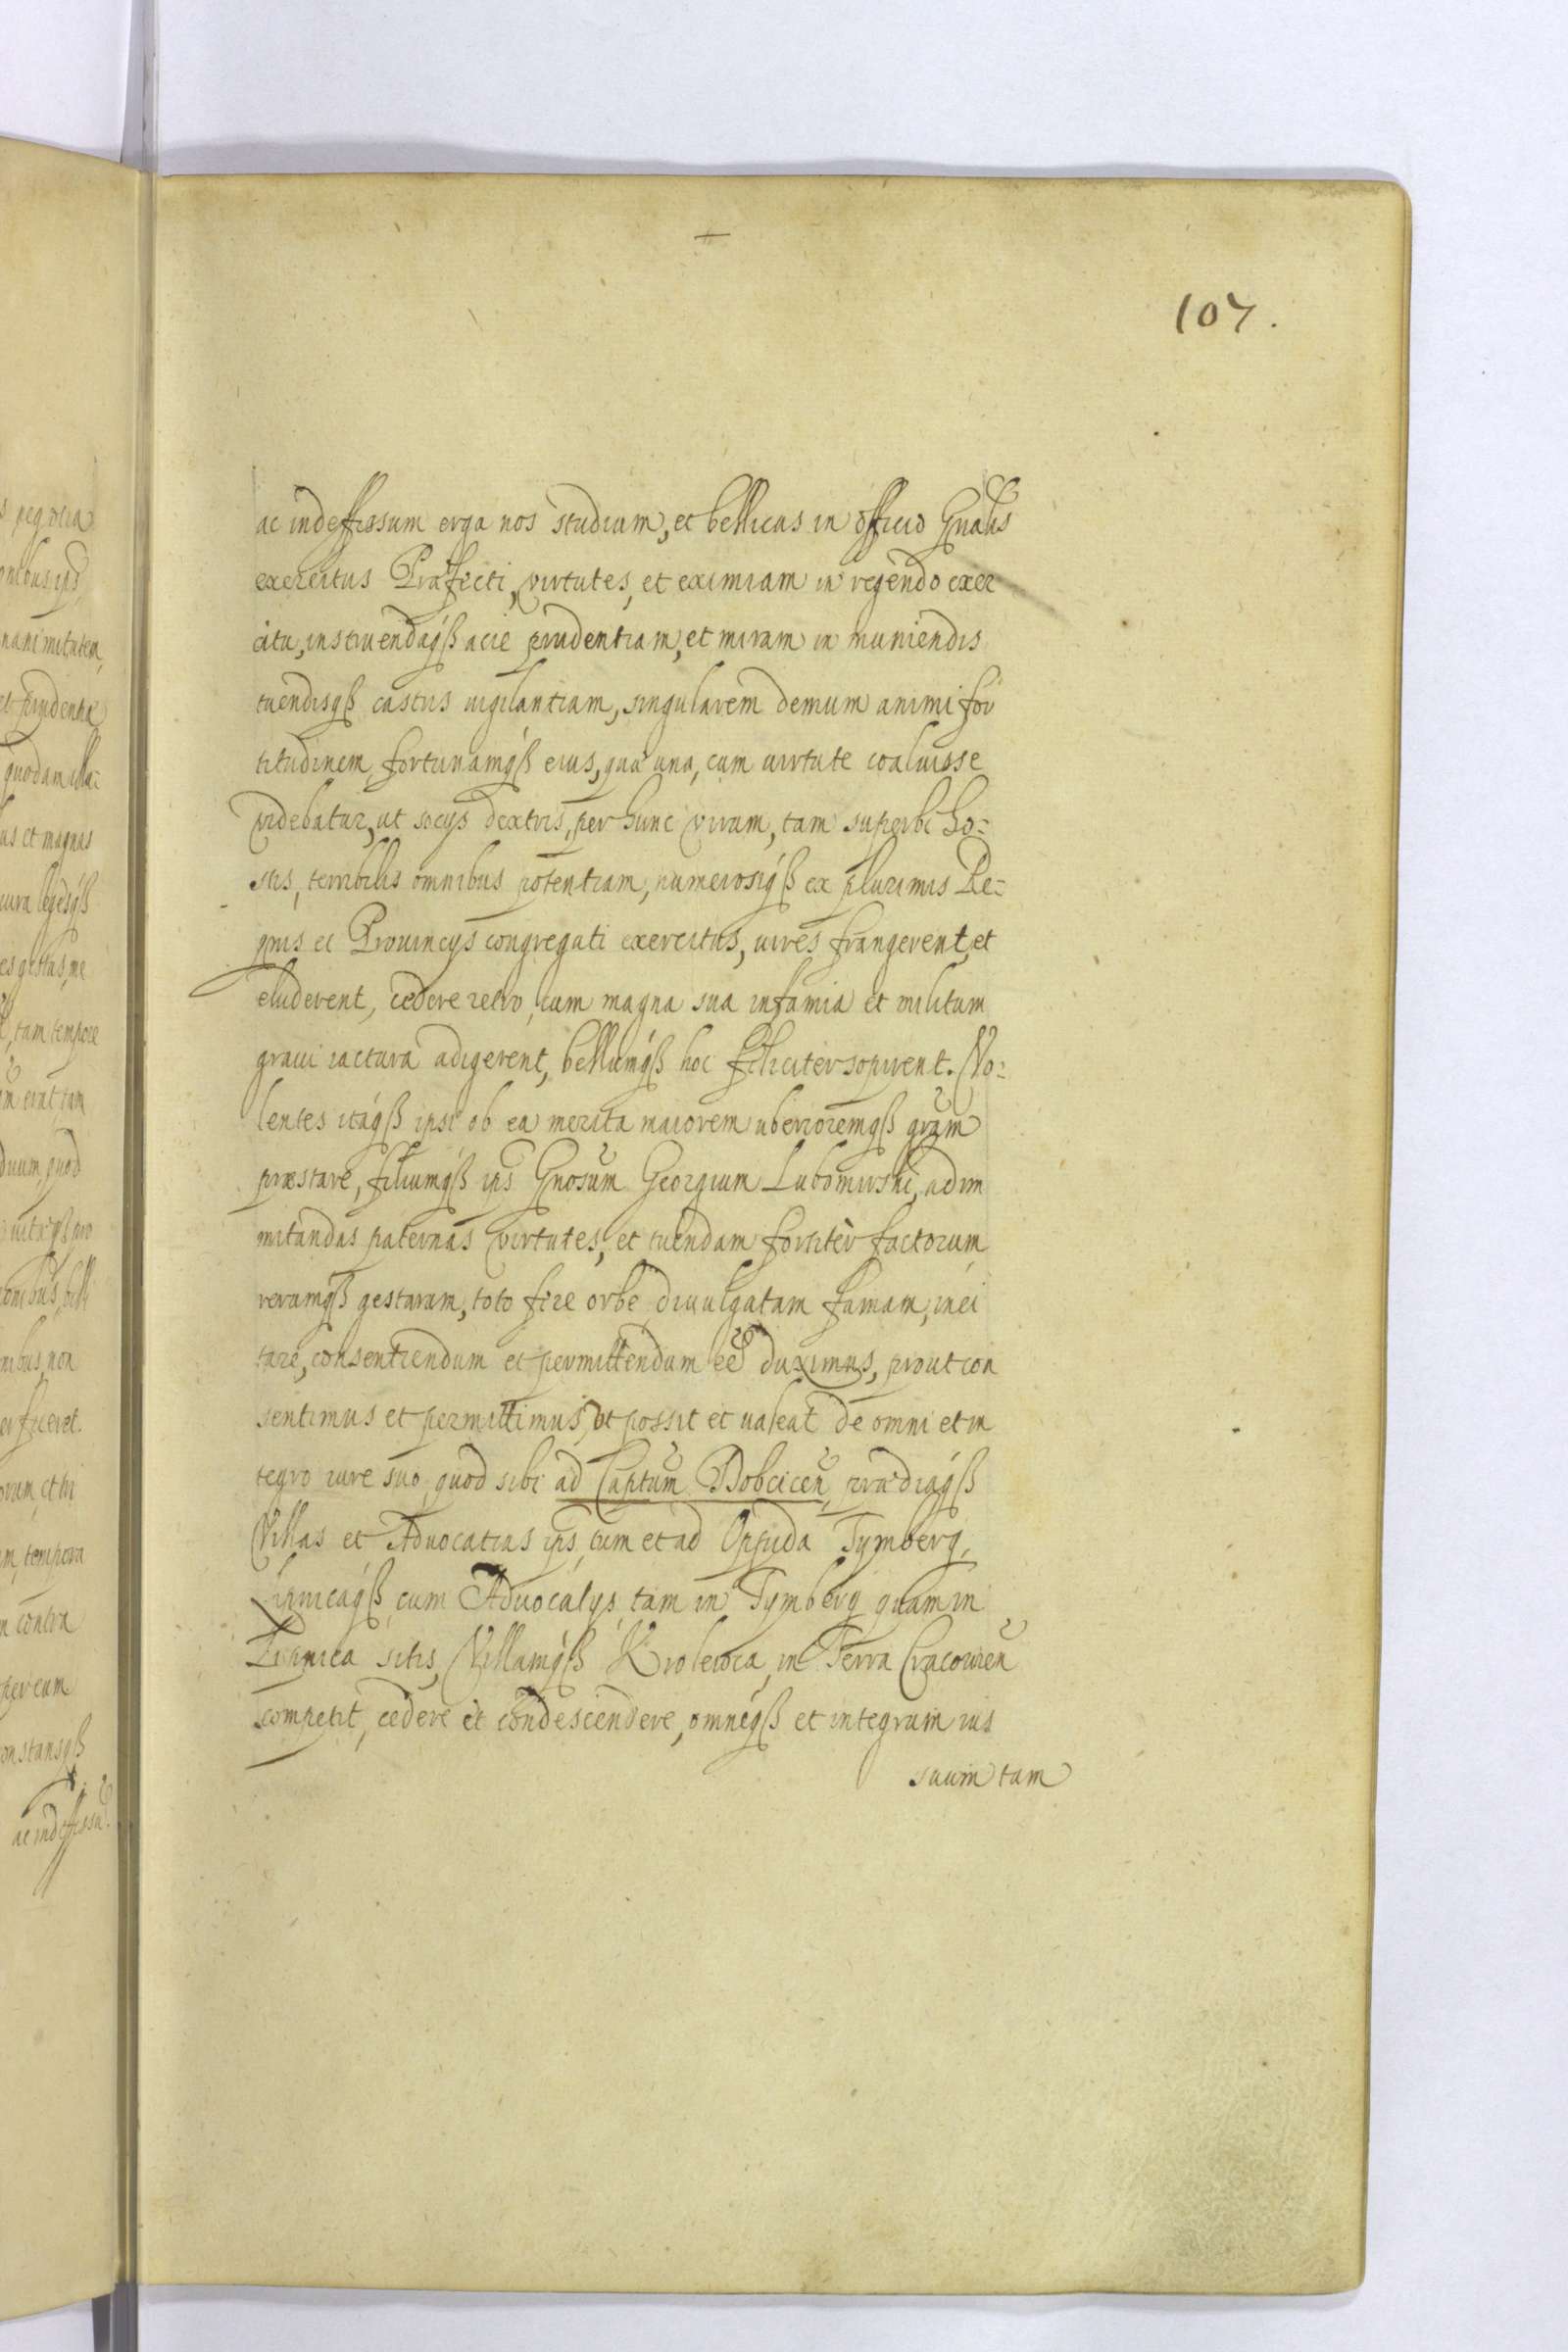 107.
ac indeffissum erga nos studium, et bellicas in officio Gnalis
exercitus Præfecti, virtutes, et eximiam in regendo exer
citu, instruendaqß acie prudentiam, et miram in muniendis
tuendisqß castris vigilantiam, singularem demum animi for
titudinem, fortunamqß eius, quæ una, cum virtute coaluisse
videbatur, ut socys dextris, per hunc virum, tam superbi ho-
stis, terribilis omnibus potentiam, numerosiqß ex plurimis Re-
gnis et Provincys congregati exercitus, vires frangerent, et
eluderent, cedere retro, cum magna sua infamia et militum
gravi iactura adigerent, bellumqß hoc feliciter sopirent. Vo-
lentes itaqß ipsi ob ea merita maiorem uberioremqß gram
præstare, filiumqß ips Gnosum Georgium Lubomirski, ad im
mitandas paternas virtutes, et tuendam fortiter factorum
rerumqß gestarum, toto fere orbe divulgatam famam, inci
tare, consentiendum et permittendum ee duximus, prout con
sentimus et permittimus, ut possit et valeat de omni et in
tegro iure suo, quod sibi ad Captum Dobcicen, prædiaqß
Villas et Advocatias ips, tum et ad Oppida Tymberg,
Lipnicaqß, cum Advocatys, tam in Tymberg quam in
Lipnica sitis, Villamqß Krolewca, in Terra Cracovien
competit, cedere et condescendere, omneqß et integrum ius
suum tam
quodam illa-
us et magnas
tam tempore
quod
mibus, non
tempora
contra
per eum
ac indeffissu